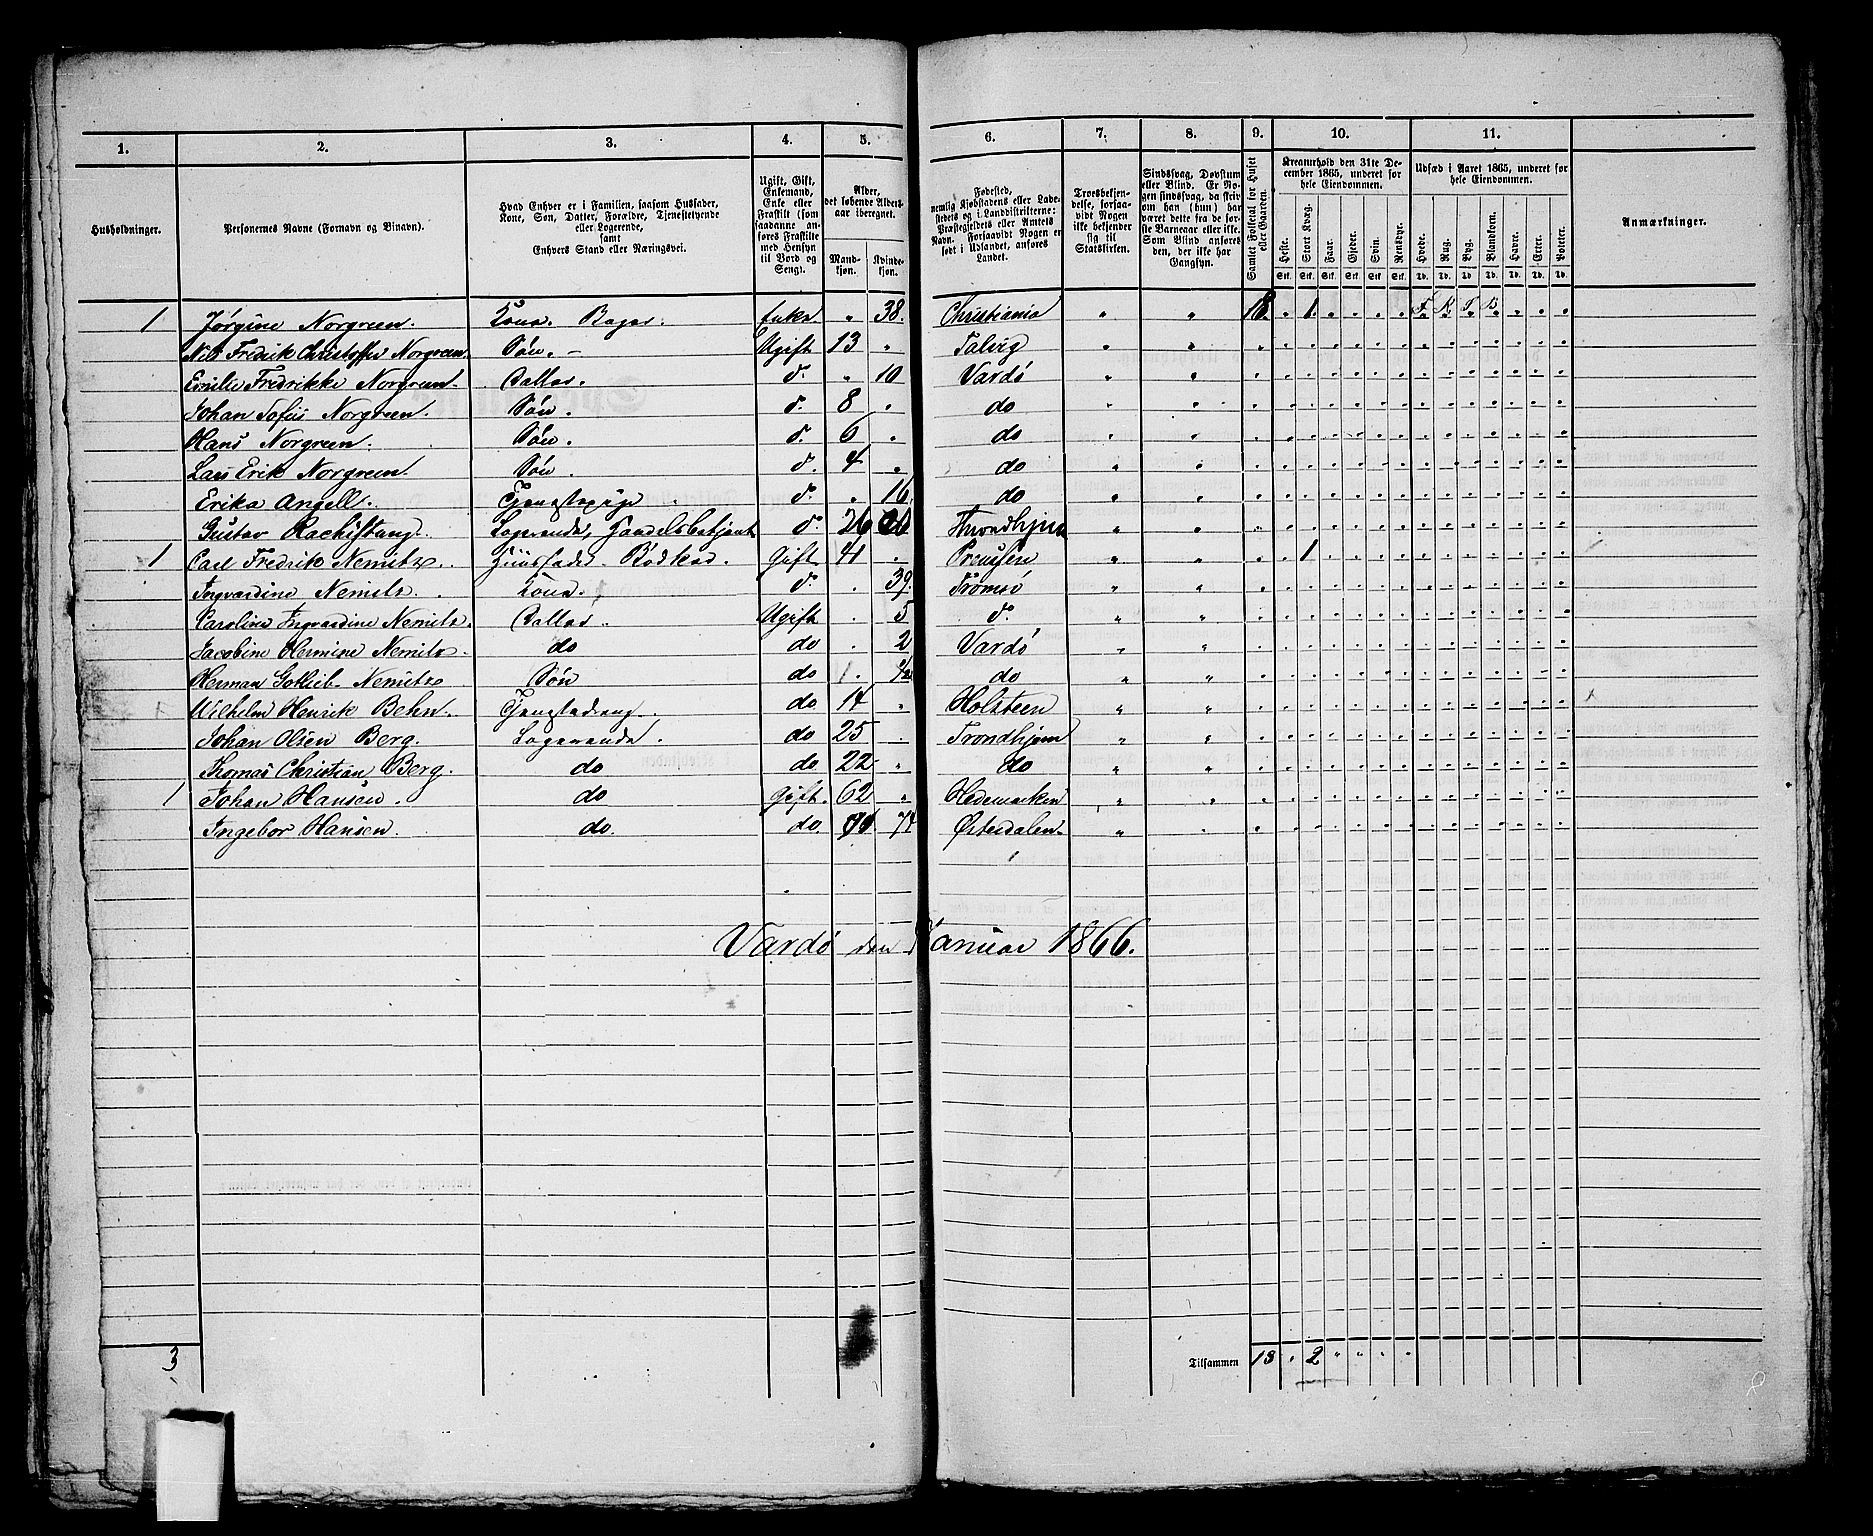 1. 2. 3. 4. 5. 6. 7. 8. 9. 10. 11.
Husholdninger.
Personernes Navne (Fornavn og Binavn).
Hvad Enhver er i Familien, saasom Husfader,
Kone, Søn, Datter, Forældre, Tjenestetyende
eller Logerende,
samt
Enhvers Stand eller Næringsvei.
Ugift, Gift,
Enkemand,
Enke eller
Fraskilt (som
saadanne an-
føres Fraskilte
med Hensyn
til Bord og
Seng).
Alder,
det løbende Alders-
aar iberegnet.
Mand-
kjøn.
Kvinde-
kjøn.
Fødested,
nemlig Kjøbstadens eller Lade-
stedets og i Landdistrikterne:
Præstegjeldets eller Amtets
Navn. Forsaavidt Nogen er
født i Udlandet, anføres
Landet.
Troesbekjen-
delse, forsaa-
vidt Nogen
ikke bekjender
sig til
Statskirken.
Sindssvag, Døvstum
eller Blind. Er No-
gen sindssvag, da skriv
om han (hun) har
været dette fra de før-
ste Barneaar eller ikke.
Som Blind anføres
den, der ikke har
Gangsyn.
Samlet Folketal for Huset
eller Gaarden.
Kreaturhold den 31te De-
cember 1865, underet for
hele Eiendommen.
Heste. Stort Kvæg. Faar. Gjeder. Svin. Rensdyr.
Stk. Stk. Stk. Stk. Stk. Stk.
Udsæd i Aaret 1865, underet for
hele Eiendommen.
Hvede. Rug. Byg. Blandkorn. Havre. Erter. Poteter.
Td. Td. Td. Td. Td. Td. Td.
Anmærkninger.
1 Jørgine Norgreen. Kone. Bager. Enke. " 38. Christiania " " 18. " 1
Nils Fredrik Christoffer Norgreen. Søn. Ugift 13 " Talvig
Emilie Fredrikke Norgreen. Datter. d. " 10 Vardö
Johan Sofus Norgreen. Søn. d. 8 " do
Hans Norgreen. Søn. d. 6 " do
Lars Erik Norgreen. Søn. d. 4 " do
Erika Angell. Tjenestepige d. " 16 do
Gustav Logerende, Handelsbetjent d. 26 Throndhjem
1 Carl Fredrik Nemitz. Huusfader. Bødker. Gift. 41 Preussen " " " " 1
Ingvardine Nemitz. Kone. d. 39. Tromsö
Caroline Ingvardine Nemitz. Datter. Ugift 5 d.
Jacobine Hermine Nemitz. do do 2 Vardö
Herman Gotlieb Nemitz Søn do do
Wilhelm Henrik Behn. Tjenestedreng. do 14 " Holsteen
Johan Olsen Berg. Logerende. do 25 Trondhjem
Thomas Christian Berg. do do 22 " do
1 Johan Hansen. do Gift. 62 " Hedemarken
Ingebor Hansen. do do 74 Østerdalen.
Vardö den Januar 1866.
3
Tilsammen 18 " 2 " " " "